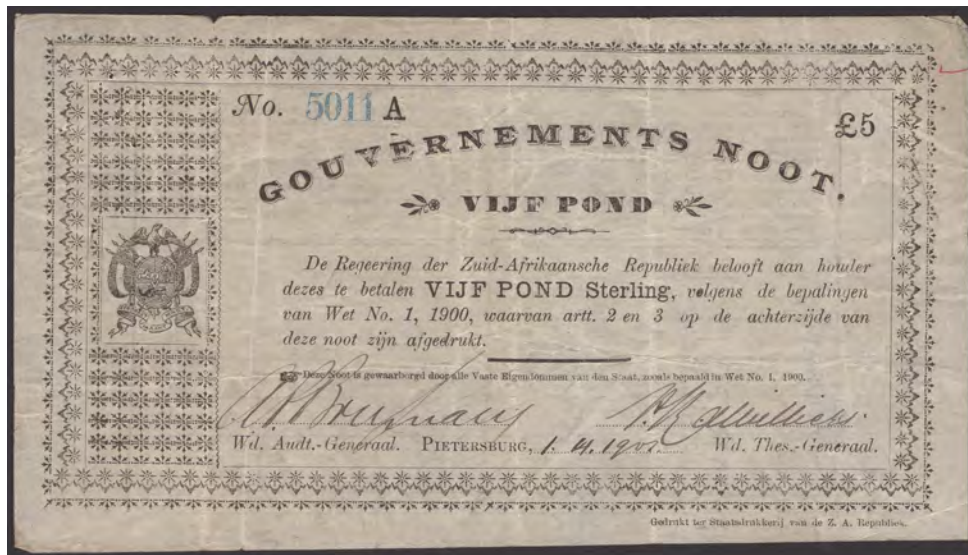 No. 5011 A £5
GOUVERNEMENTS NOOT.
VIJF POND
De Regeering der Zuid-Afrikaansche Republiek belooft aan houder
dezes te betalen VIJF POND Sterling, volgens de bepalingen
van Wet No. 1, 1900, waarvan artt. 2 en 3 op de achterzijde van
deze noot zijn afgedrukt.
Deze Noot is gewaarborgd door alle Vaste Eigendommen van den Staat, zooals bepaald in Wet No. 1, 1900.
Wd. Audt.-Generaal. PIETERSBURG, 1. 4. 1901. Wd. Thes.-Generaal.
Gedrukt ter Staatsdrukkerij van de Z. A. Republiek.